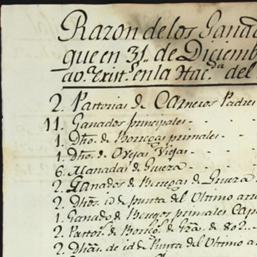 Razon de los Ganad
que en 31 de Diciemb
ao. Exist. en la Hac.da del
2. Partorias de Carneros Padres
11. Ganados principales
1. Dho. de Borregas primales
1. Dho. de Ovejas Viejas
6. Manadas de Guera
2. Ganados de Borregas de Guera
2. Dhos. id de punta del Ultimo
1. Ganado de Borregos primales Cap
2. Partor. de Borreg. de
2. Dhas. de id de Punta del Ultimo a